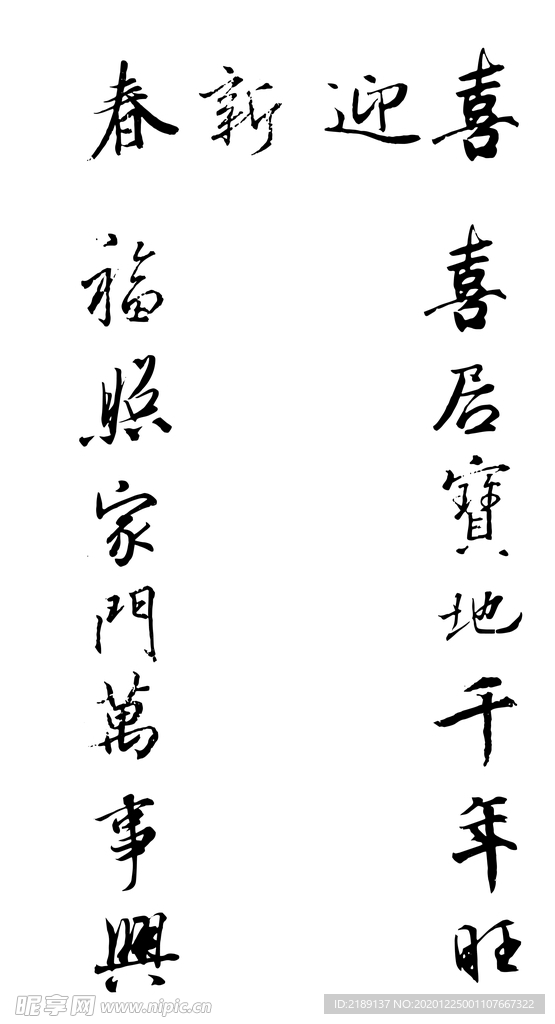 喜迎新春
喜居寶地千年旺
福照家門萬事興
昵享网 www.nipic.cn
ID:2189137 NO:20201225001107667322